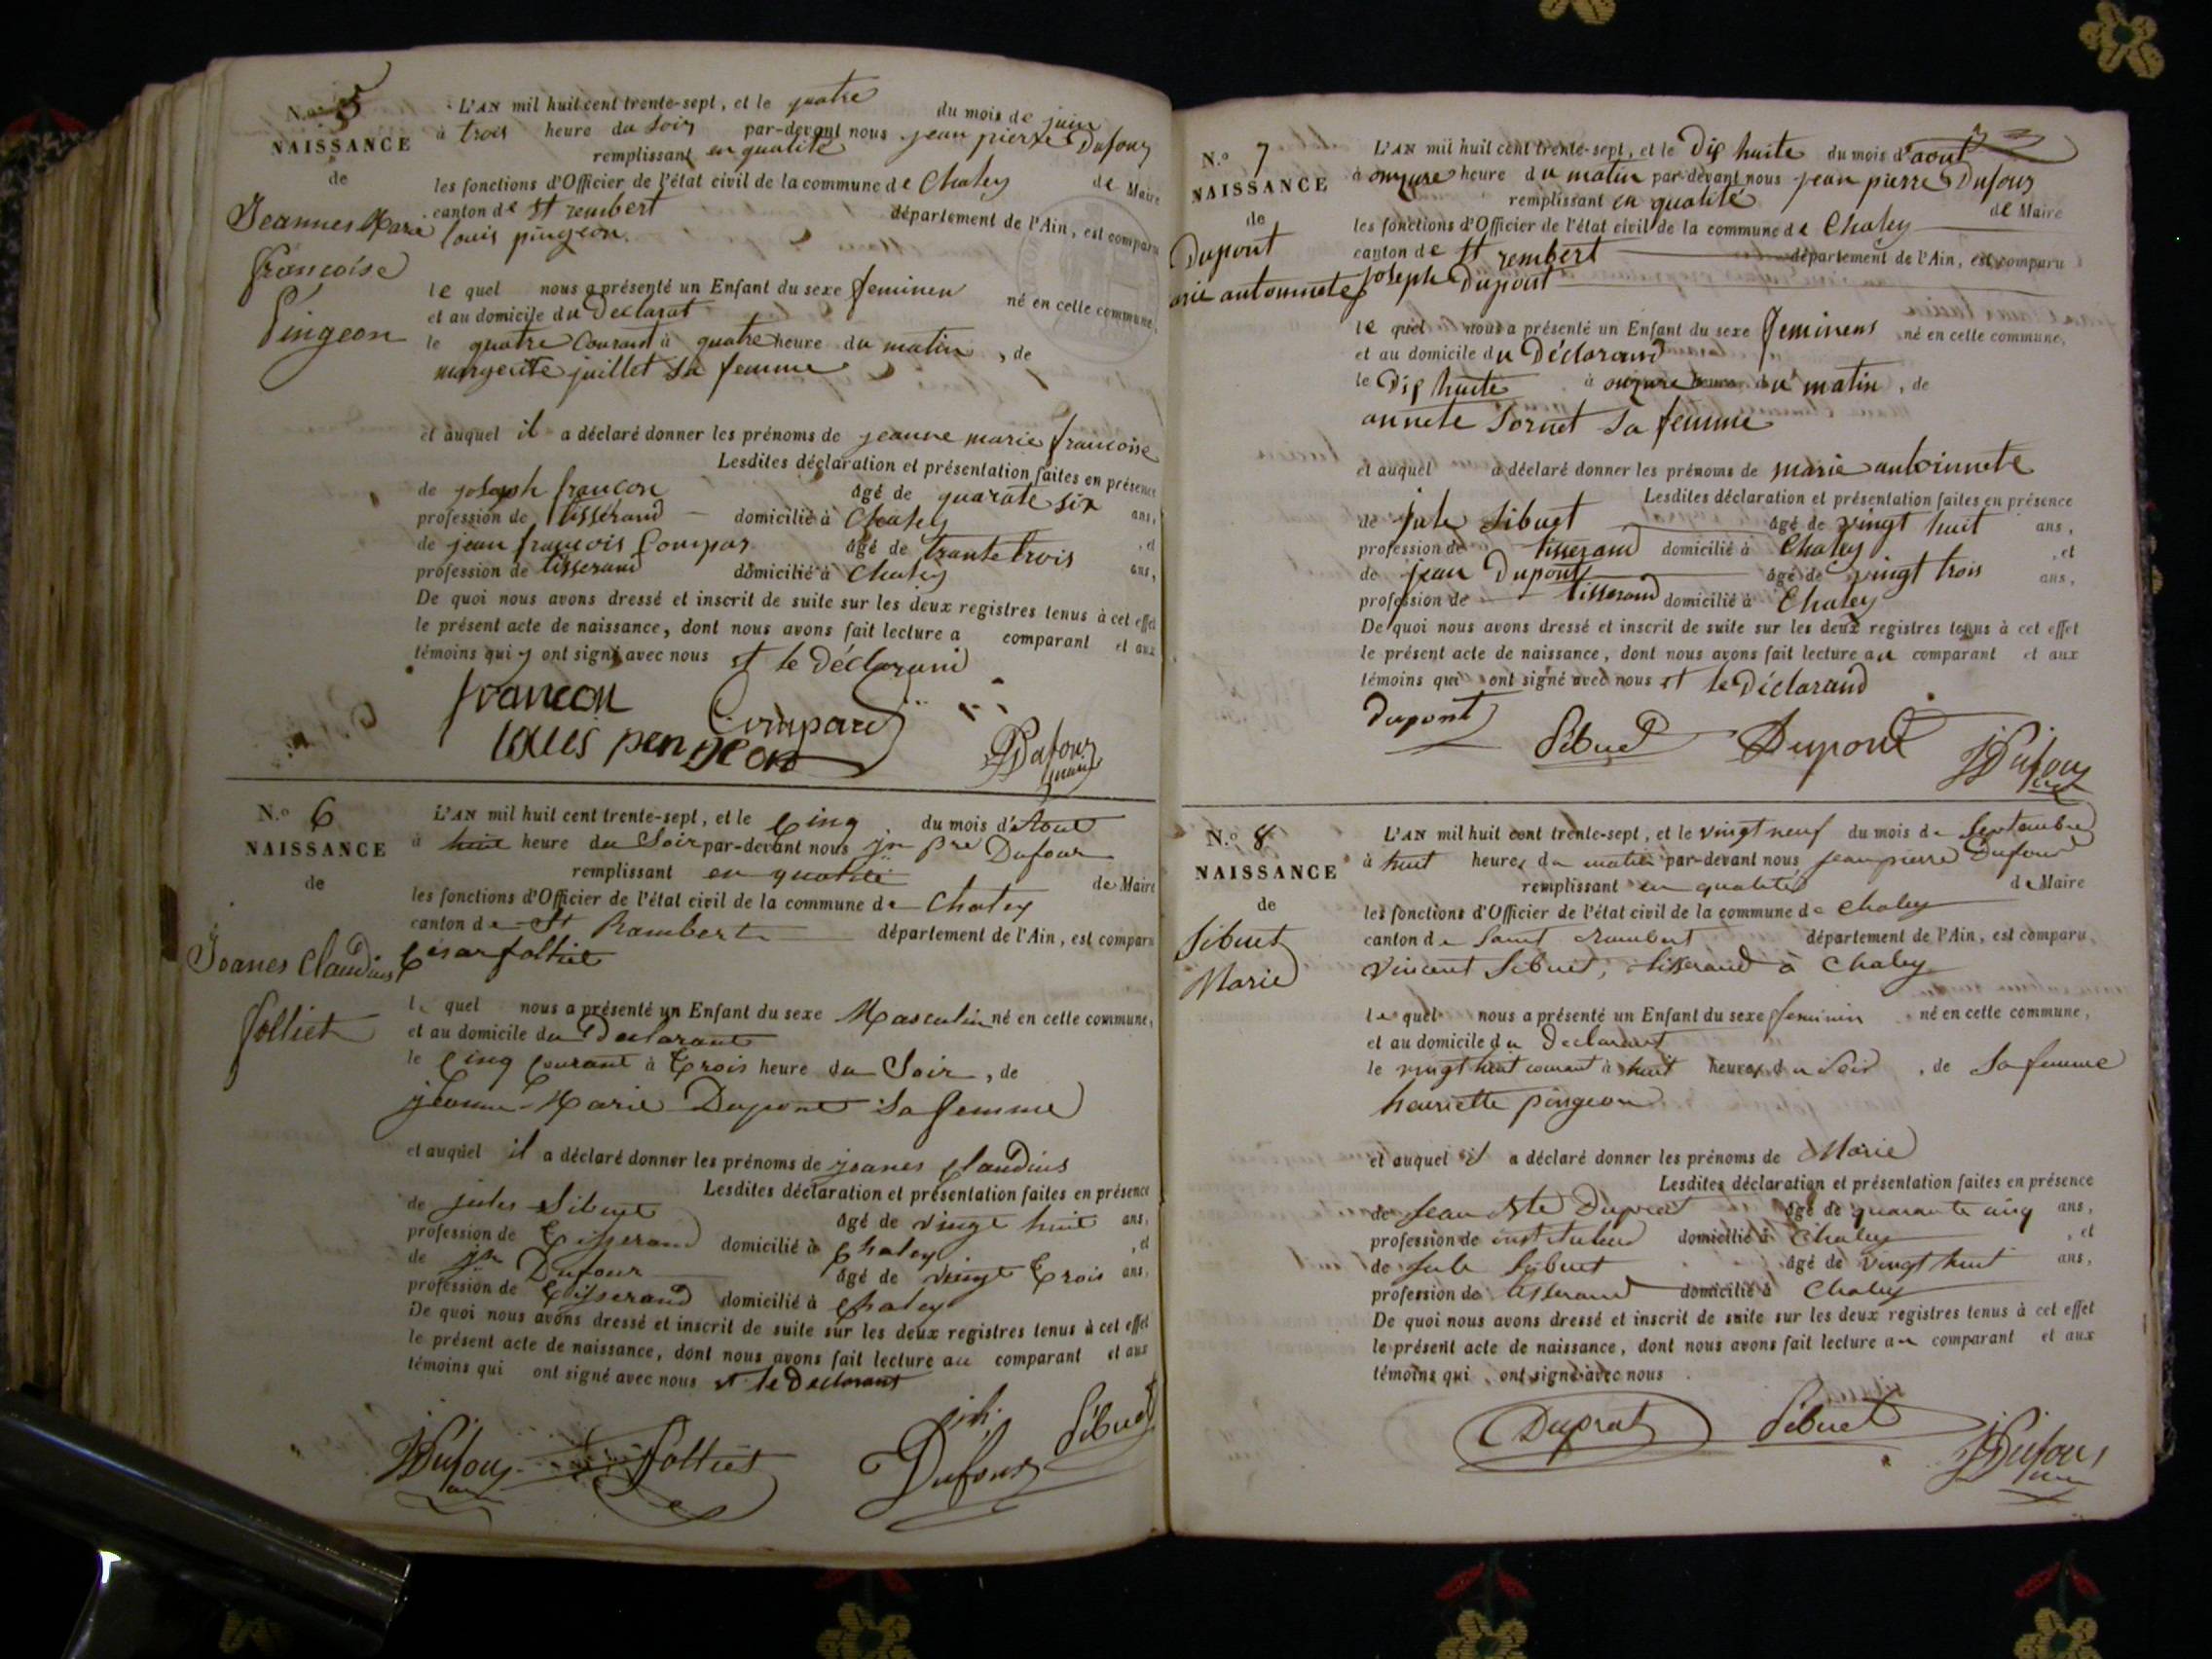 N.o 5
NAISSANCE
de
Jeannes Marie
francoise
Pingeon
L'AN mil huit cent trente-sept, et le quatre du mois de juin
à trois heure du soir par-devant nous jean pierre Dufour
remplissant en qualité de Maire
les fonctions d'Officier de l'état civil de la commune de Chaley
canton de St rembert département de l'Ain, est comparu
louis pingeon
le quel nous a présenté un Enfant du sexe feminen né en cette commune,
et au domicile du Declarat
le quatre Courant à quatre heure du matin, de
margerite juillet sa femme
et auquel il a déclaré donner les prénoms de jeanne marie francoise
Lesdites déclaration et présentation faites en présence
de joseph francon âgé de quarate six ans,
profession de tisserand domicilié à Chaley, et
de jean francois Compar âgé de trante trois ans,
profession de tisserand domicilié à Chaley
De quoi nous avons dressé et inscrit de suite sur les deux registres tenus à cet effet
le présent acte de naissance, dont nous avons fait lecture a comparant et aux
témoins qui y ont signé avec nous et le Déclarand
francon Compard
louis pengeon
JPDufour
maire
N.o 6
NAISSANCE
de
Joanes Claudius
folliet
L'AN mil huit cent trente-sept, et le Cinq du mois d'Aout
à huit heure du Soir par-devant nous jn pre Dufour
remplissant en qualité de Maire
les fonctions d'Officier de l'état civil de la commune de Chaley
canton de St Rambert département de l'Ain, est comparu
César folliet
le quel nous a présenté un Enfant du sexe Masculin né en cette commune,
et au domicile du Declarant
le Cinq Courant à Trois heure du Soir, de
jeanne Marie Dupont sa femme
et auquel il a déclaré donner les prénoms de joanes Claudius
Lesdites déclaration et présentation faites en présence
de jules Sibuet âgé de vingt huit ans,
profession de Tisserand domicilié à Chaley, et
de jh Dufour âgé de vingt Trois ans,
profession de Tisserand domicilié à Chaley
De quoi nous avons dressé et inscrit de suite sur les deux registres tenus à cet effet
le présent acte de naissance, dont nous avons fait lecture au comparant et aux
témoins qui ont signé avec nous et le Declarant
JPDufour folliet jh Dufour Sibuet
N.o 7
NAISSANCE
de
Dupont
arie antonnete
L'AN mil huit cent trente-sept, et le Dix huite du mois d'aout
à onzure heure du matin par-devant nous jean pierre Dufour
remplissant en qualité de Maire
les fonctions d'Officier de l'état civil de la commune de Chaley
canton de St rembert département de l'Ain, est comparu
joseph Dupont
le quel nous a présenté un Enfant du sexe feminens né en cette commune,
et au domicile du Déclarand
le Dix huite à onzure heure du matin, de
annete Sornet sa femme
et auquel a déclaré donner les prénoms de marie antoinnete
Lesdites déclaration et présentation faites en présence
de jule Sibuet âgé de vingt huit ans,
profession de tisserand domicilié à Chaley, et
de jean Dupont âgé de vingt trois ans,
profession de tisserand domicilié à Chaley
De quoi nous avons dressé et inscrit de suite sur les deux registres tenus à cet effet
le présent acte de naissance, dont nous avons fait lecture au comparant et aux
témoins qui ont signé avec nous et le Déclarand
dupont Sibuet Dupont JPDufour
N.o 8
NAISSANCE
de
Sibuet
Marie
L'AN mil huit cent trente-sept, et le vingt neuf du mois de Septembre
à huit heures du matin par-devant nous jean pierre Dufour
remplissant en qualité de Maire
les fonctions d'Officier de l'état civil de la commune de Chaley
canton de Saint Rambert département de l'Ain, est comparu
Vincent Sibuet, tisserand à Chaley
le quel nous a présenté un Enfant du sexe feminin né en cette commune,
et au domicile du declarant
le vingt huit courant à huit heures du Soir, de Sa femme
henriette pingeon
et auquel il a déclaré donner les prénoms de Marie
Lesdites déclaration et présentation faites en présence
de Jean Bte Duprat âgé de quarante cinq ans,
profession de instituteur domicilié à Chaley, et
de Jule Sibuet âgé de vingt huit ans,
profession de tisserand domicilié à Chaley
De quoi nous avons dressé et inscrit de suite sur les deux registres tenus à cet effet
le présent acte de naissance, dont nous avons fait lecture au comparant et aux
témoins qui ont signé avec nous
Duprat Sibuet JPDufour